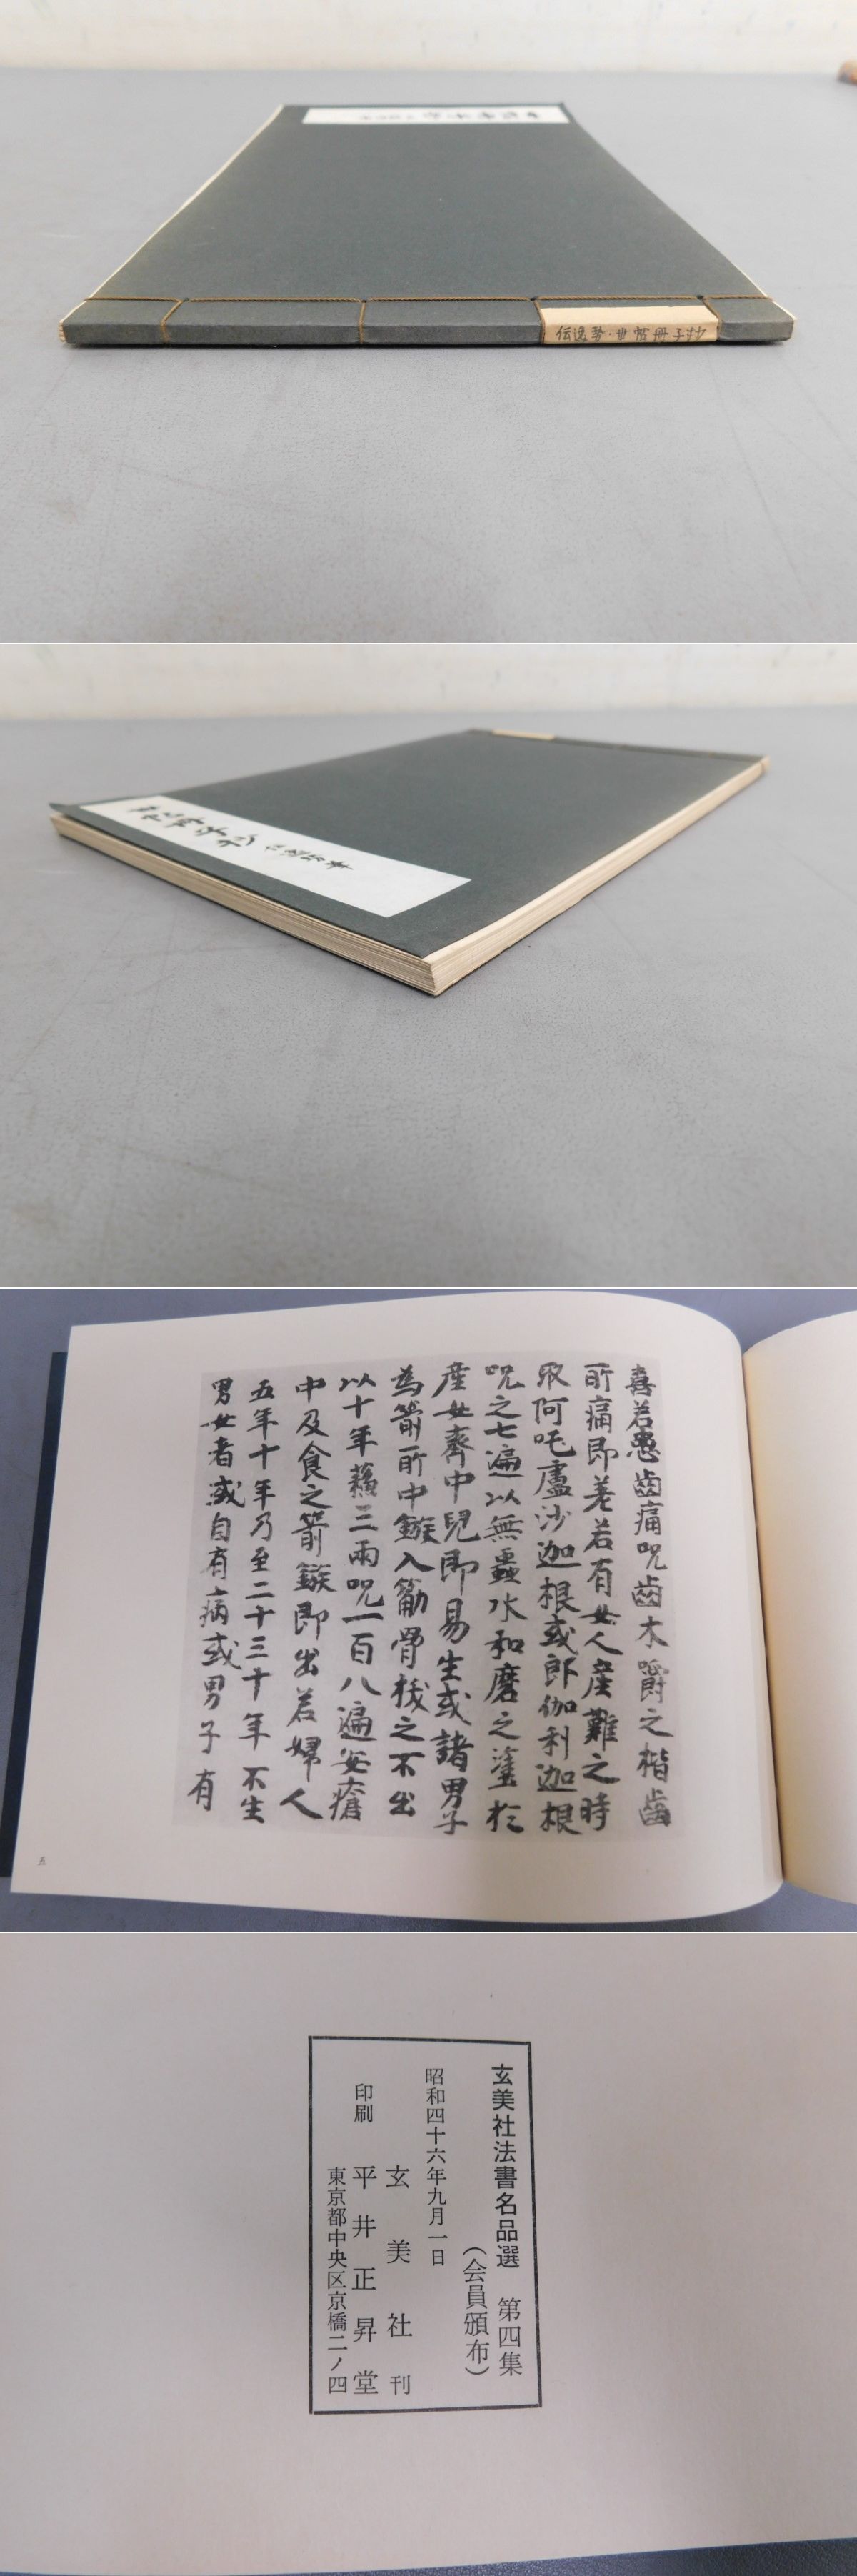 伝逸勢・世帖冊子抄
喜若患齒痛呪齒木嚼之楷齒
所痛即差若有女人産難之時
取阿吒盧沙迦根或郎伽利迦根
呪之七遍以無蟲水和磨之塗於
産女齊中兒即易生或諸男子
為箭所中鏃入筋骨拔之不出
以十年蘓三兩呪一百八遍安瘡
中及食之箭鏃即出若婦人
五年十年乃至二十三十年不生
男女者或自有病或男子有
五
玄美社法書名品選 第四集
(会員頒布)
昭和四十六年九月一日
玄美社刊
印刷 平井正昇堂
東京都中央区京橋二ノ四